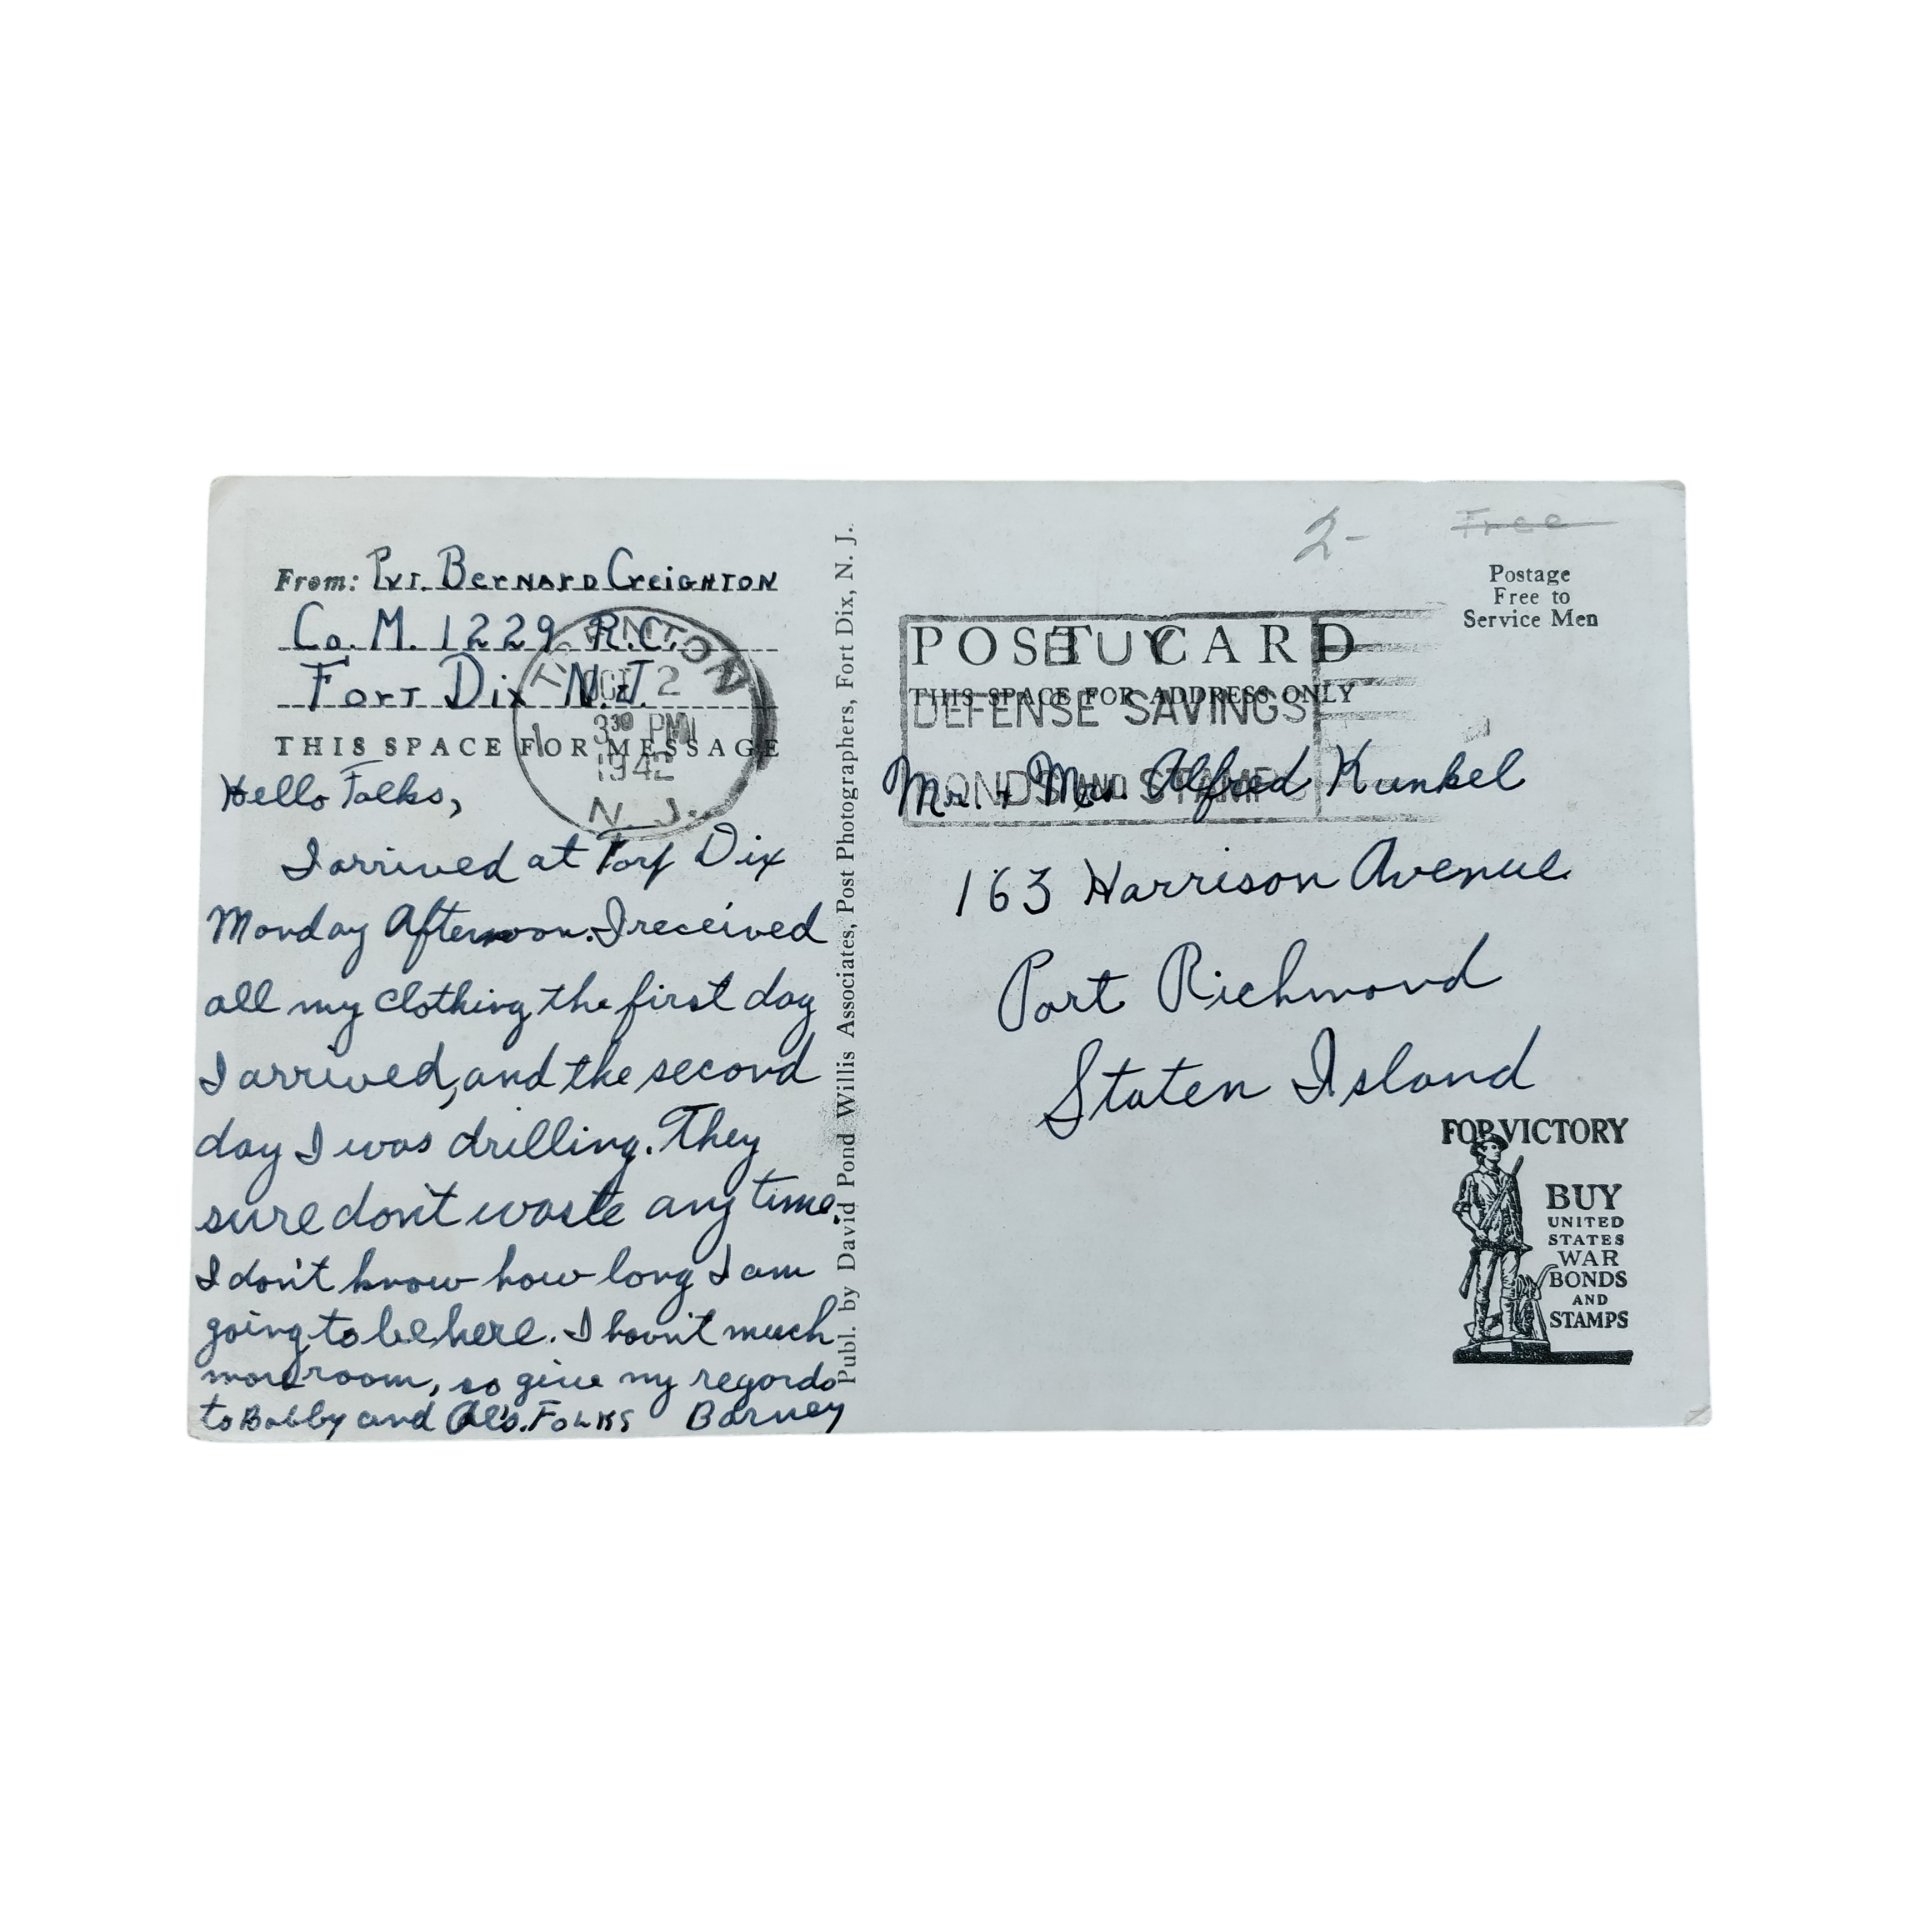 From: Pvt. Bernard Creighton
Co. M. 1229 R.C.
Fort Dix N.J.
THIS SPACE FOR MESSAGE
TRENTON
OCT 2
3 30 PM
1942
N. J.
Hello Folks,
I arrived at Forf Dix
Monday Afternoon. I received
all my clothing the first day
I arrived, and the second
day I was drilling. They
sure don't waste any time.
I don't know how long I am
going to be here. I hav'nt much
more room, so give my regards
to Bobby and Al's. Folks Barney
Publ. by David Pond Willis Associates, Post Photographers, Fort Dix, N. J.
2-
Free
Postage
Free to
Service Men
POST CARD
THIS SPACE FOR ADDRESS ONLY
BUY
DEFENSE SAVINGS
BONDS AND STAMPS
Mr. + Mrs. Alfred Kunkel
163 Harrison Avenue
Port Richmond
Staten Island
FOR VICTORY
BUY
UNITED
STATES
WAR
BONDS
AND
STAMPS